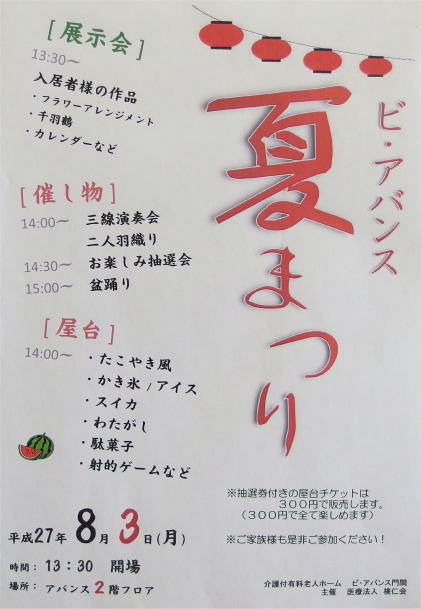 ビ・アバンス
夏まつり
[展示会]
13:30～
入居者様の作品
・フラワーアレンジメント
・千羽鶴
・カレンダーなど
[催し物]
14:00～ 三線演奏会
二人羽織り
14:30～ お楽しみ抽選会
15:00～ 盆踊り
[屋台]
14:00～
・たこやき風
・かき氷 / アイス
・スイカ
・わたがし
・駄菓子
・射的ゲームなど
※抽選券付きの屋台チケットは
300円で販売します。
(300円で全て楽しめます)
※ご家族様も是非ご参加ください！
平成27年 8月 3日(月)
時間： 13：30 開場
場所： アバンス 2階フロア
介護付有料老人ホーム ビ・アバンス門間
主催 医療法人 桃仁会